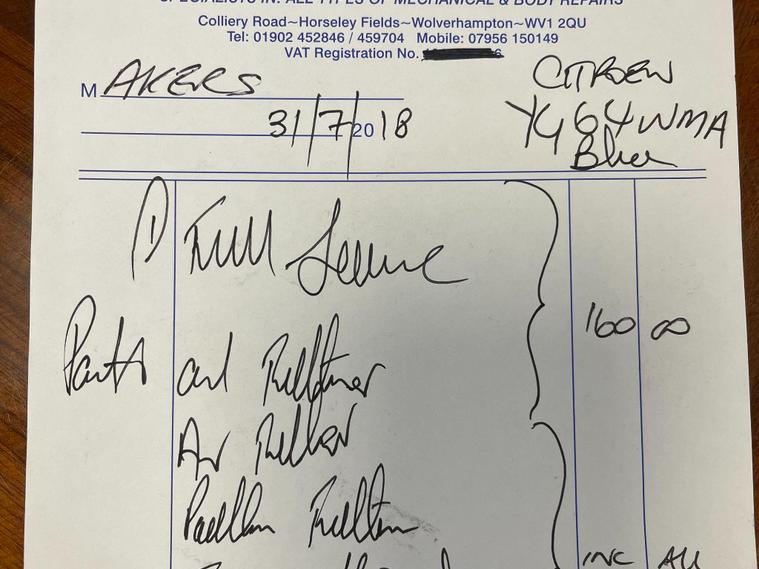 SPECIALISTS IN: ALL TYPES OF MECHANICAL & BODY REPAIRS
Colliery Road~Horseley Fields~Wolverhampton~WV1 2QU
Tel: 01902 452846 / 459704 Mobile: 07956 150149
VAT Registration No.
M AKERS
CITROEN
31/7/2018
YG64WMA
Blue
1) Full Service
160 00
Parts
Air
Pollen
INC ALL